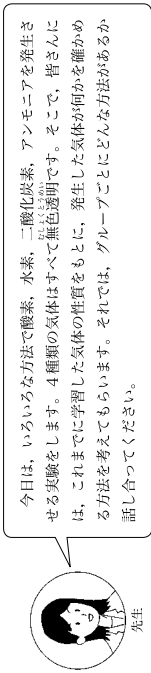 今日は，いろいろな方法で酸素，水素，二酸化炭素，アンモニアを発生さ
せる実験をします。４種類の気体はすべて無色透明です。そこで，皆さんに
むしょくとうめい
は，これまでに学習した気体の性質をもとに，発生した気体が何かを確かめ
る方法を考えてもらいます。それでは，グループごとにどんな方法があるか
話し合ってください。
先生